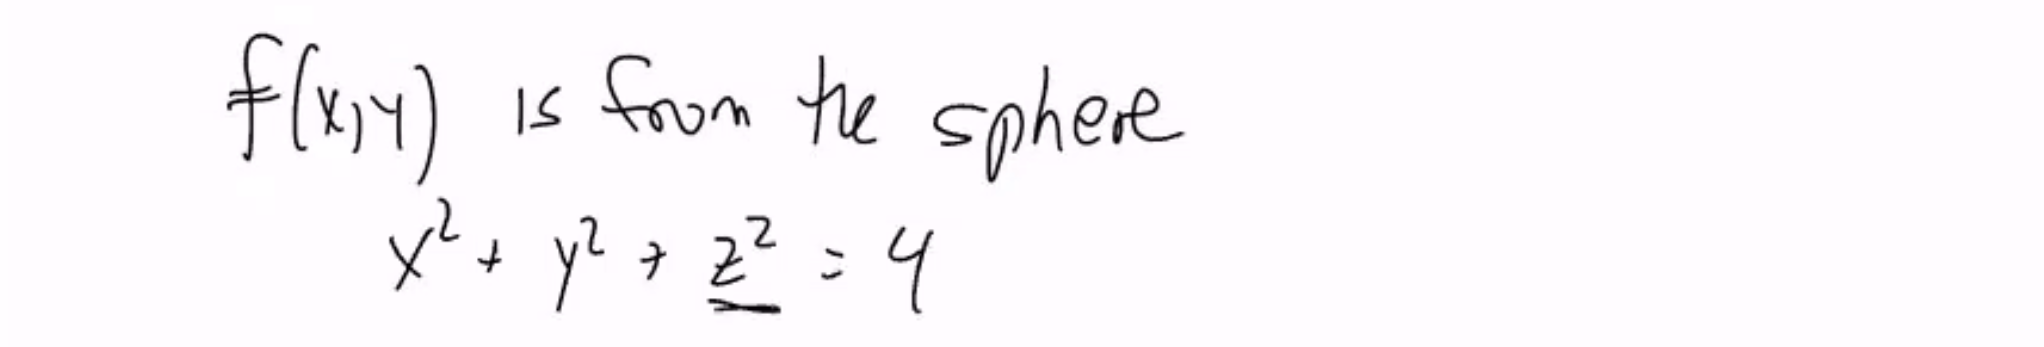 f(x,y) is from the sphere
x² + y² + z² = 4